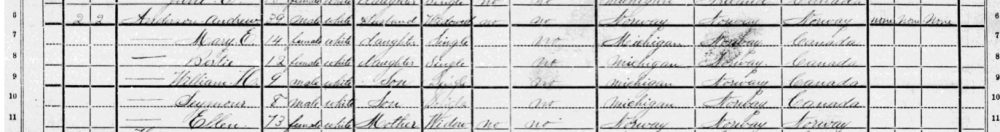 Single no no Michigan Canada
6 2 2 Anderson Andrew 39 male white Husband Widowed no no Norway Norway Norway none None None 6
7 — Mary E. 14 female white daughter Single no Michigan Norway Canada 7
8 — Bertie 12 female white daughter Single no michigan Norway Canada 8
9 — William H. 9 male white Son Single no michigan Norway Canada 9
10 — Seymour 8 male white Son Single no michigan Norway Canada 10
11 — Ellen 73 female white Mother Widow no no Norway Norway Norway 11